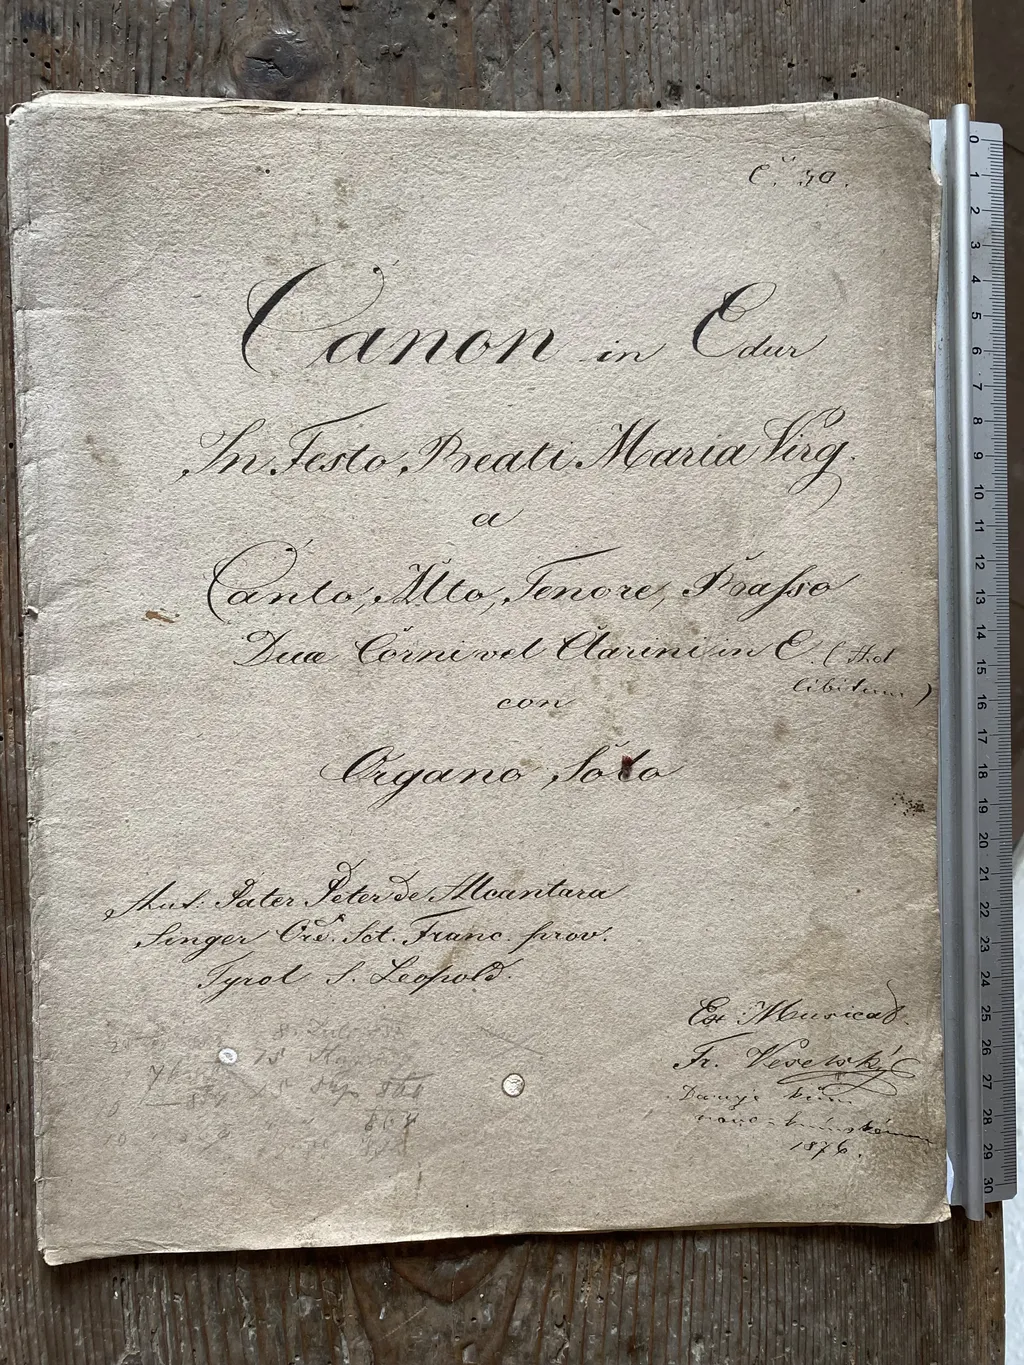 Canon in Edur
In Festo Beati Maria Virg.
a
Canto, Alto, Tenore, Basso
Due Corni vel Clarini in E. (Ad
libitum)
con
Organo Solo
Aut: Pater Peter de Alcantara
Singer Ord. Sct. Franc. prov.
Tyrol S. Leopold.
Ex Musical.
Fr. Veselský
Daruje
1876.
0 1 2 3 4 5 6 7 8 9 10 11 12 13 14 15 16 17 18 19 20 21 22 23 24 25 26 27 28 29 30